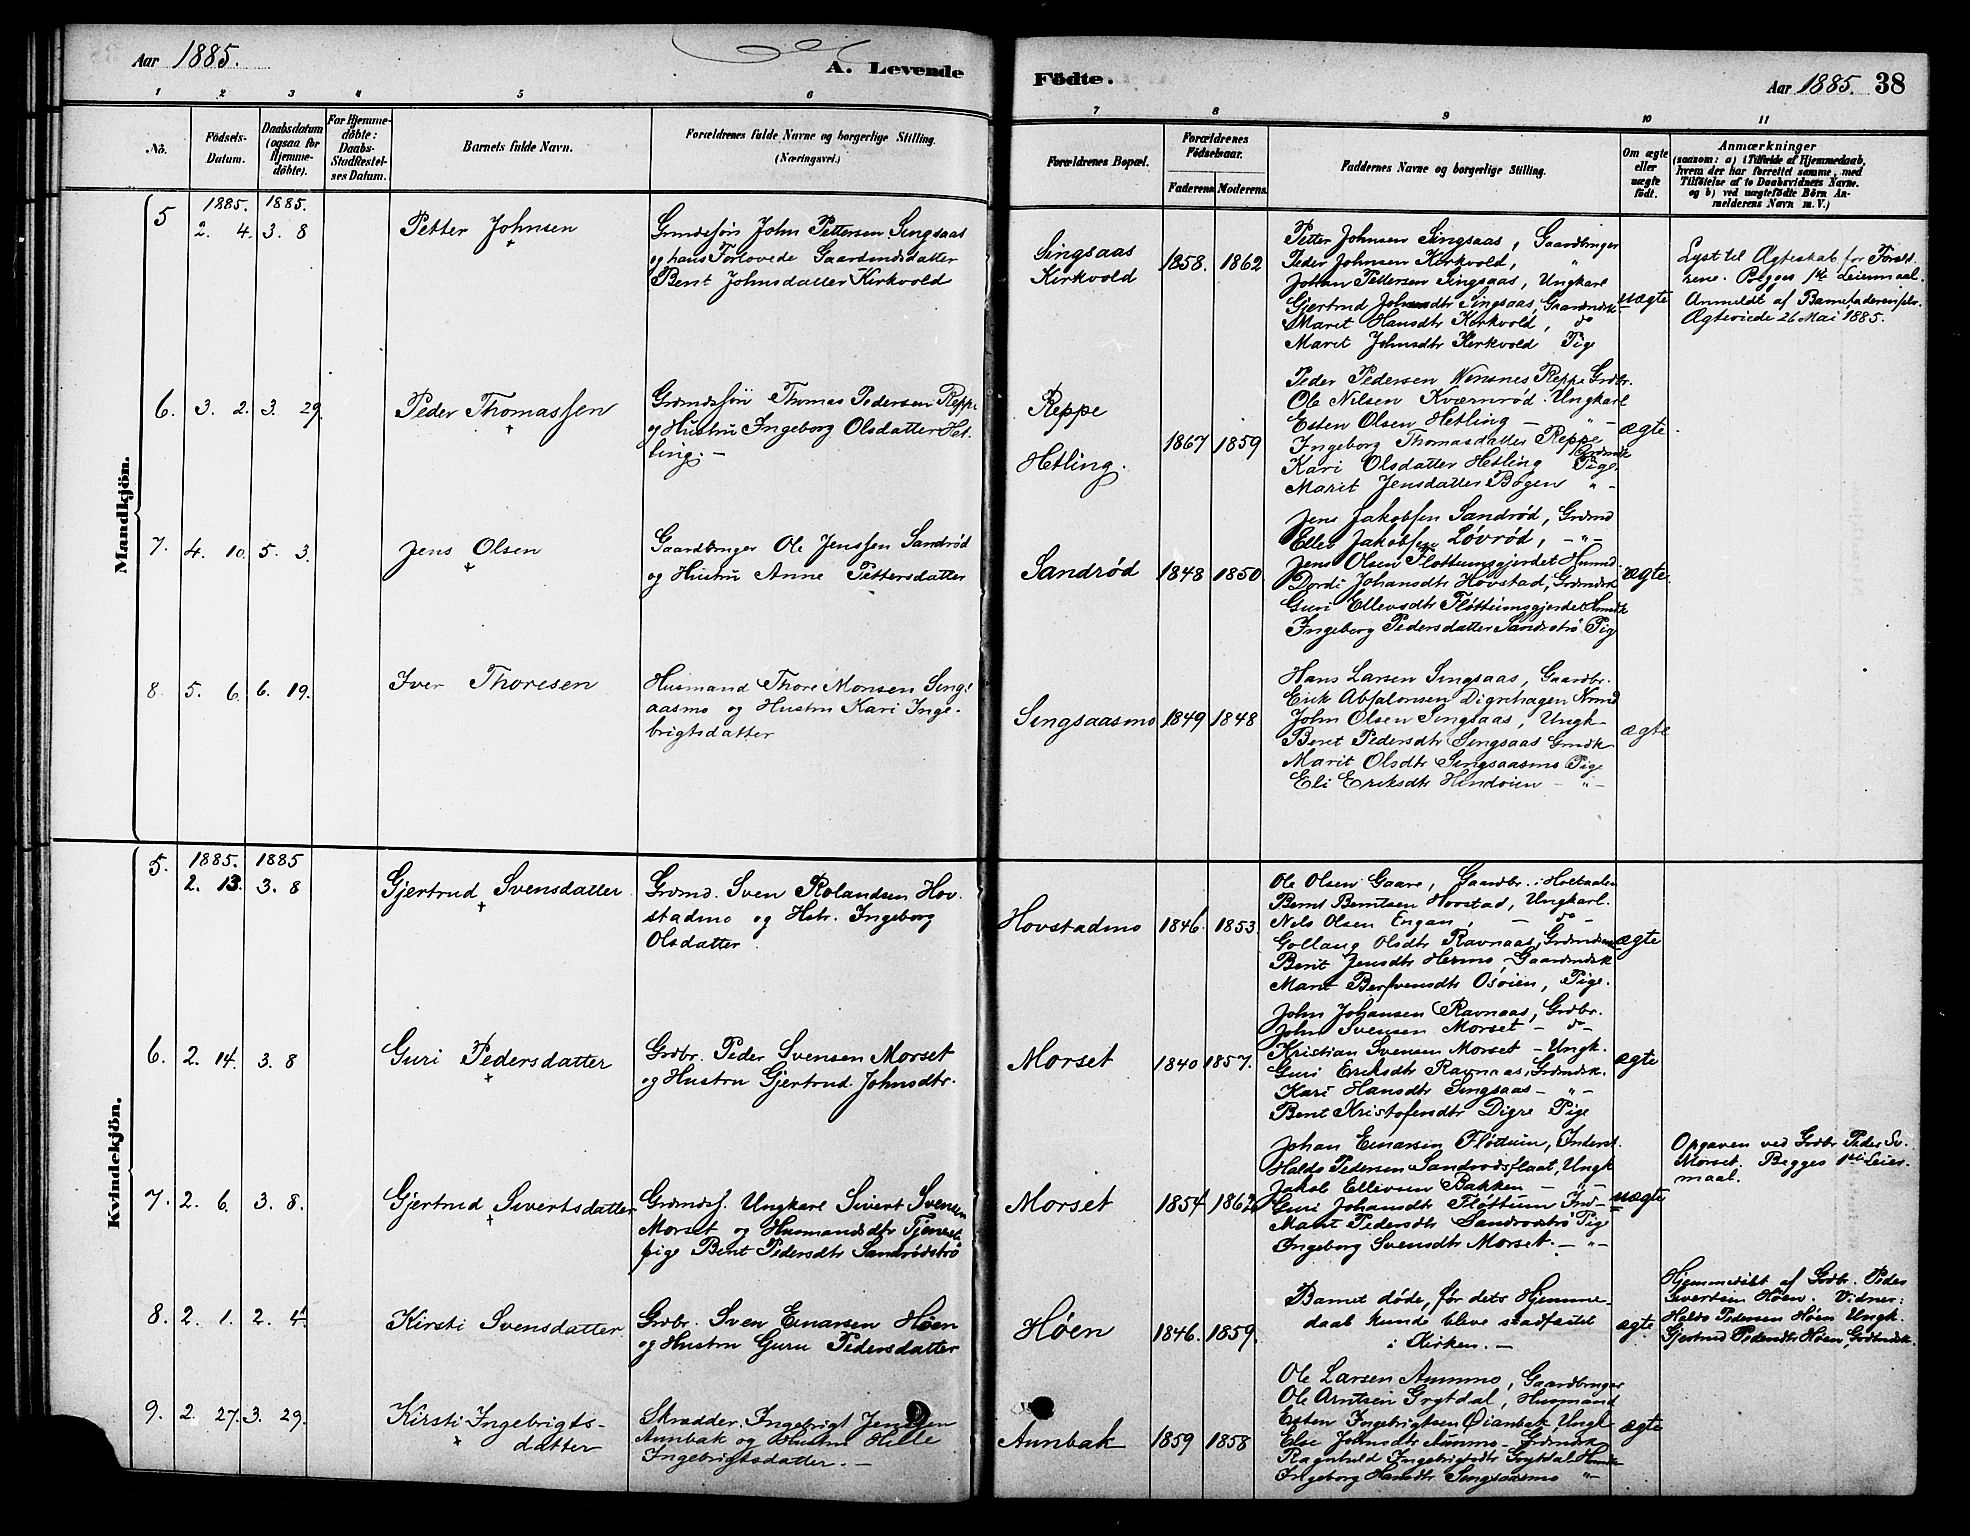 Aar 1885.
A. Levende
Födte.
Aar 1885. 38
1 2 3 4 5 6
7 8 9 10 11
No.
Födsels-
Datum.
Daabsdatum
(ogsaa for
Hjemme-
döbte).
For Hjemme-
döbte:
Daabs-
Stadfæstel-
ses Datum.
Barnets fulde Navn.
Forældrenes fulde Navne og borgerlige Stilling.
(Næringsvei.)
Forældrenes Bopæl.
Forældrenes
Födselsaar.
Faderens. Moderens.
Faddernes Navne og borgerlige Stilling.
Om ægte
eller
uægte
födt.
Anmærkninger
(saasom: a) i Tilfælde af Hjemmedaab,
hvem der har forrettet samme, med
Tilföielse af to Daabsvidners Navne.
og b) ved uægtefödte Börn An-
melderens Navn m. V.)
Mandkjön.
5
1885. 1885.
2. 4. 3. 8
Petter Johnsen
Grmdsføn John Pettersen Singsaas
og hans Forlovede Gaardmdsdatter
Berit Johnsdatter Kirkvold
Singsaas
Kirkvold
1858. 1862
Petter Johnsen Singsaas, Gaardbruger
Peder Johnsen Kirkvold, "
Johan Pettersen Singsaas, Ungkarl
Gjertrud Johnsdtr Singsaas, Gaardmdk
Marit Hansdtr Kirkvold, do
Marit Johnsdtr Kirkvold Pige
uægte
Lyst til Ægteskab for Foræl-
rene. Begges 1ste Leiermaal
Anmeldt af Barnefaderen selv.
Ægteviede 26 Mai 1885.
6. 3. 2. 3. 29.
Peder Thomassen
Grmdssøn Thomas Pedersen Reppe
og Hustru Ingeborg Olsdatter Het-
ling. —
Reppe
Hetling.
1867 1859
Peder Pedersen Reppe Grdbr.
Ole Nilsen Kværnrød Ungkarl
Esten Olsen Hetling — " —
Ingeborg Thomasdatter Reppe
Grdmdk
Kari Olsdatter Hetling Pige
Marit Jensdatter Bogen " -
ægte
7. 4. 10. 5. 3.
Jens Olsen
Gaardbruger Ole Jenssen Sandrød
og Hustru Anne Pettersdatter
Sandrød 1848 1850.
Jens Jakobsen Sandrød, Grdmd
Ellev Jakobsen Løvrød, — " —
Jens Olsen Fløttumsgjerdet Husmd.
Dordi Johansdtr Hovstad, Grdmdsk
Guri Ellevsdtr Fløttumsgjerdet Hmdk
Ingeborg Pedersdatter Sandrøstrø Pig
ægte.
8. 5. 6. 6. 19.
Iver Thoresen
Husmand Thore Monsen Sings-
aasmo og Hustru Kari Inge-
brigtsdatter
Singsaasmo 1849 1848.
Hans Larsen Singsaas, Gaardbr.
Erik Absalonsen Digrehagen Hmd
John Olsen Singsaas, Ungk-
Beret Pedersdtr Singsaas Grmdk
Marit Olsdtr Singsaasmo Pige
Eli Eriksdtr Hindøien — " —
ægte
Kvindekjön.
5.
1885. 1885
2. 13. 3. 8
Gjertrud Svensdatter
Grdmd. Sven Rolandsen Hov-
stadmo og Hstr. Ingeborg
Olsdatter.
Hovstadmo 1846. 1853.
Ole Olsen Gaare, Gaardbr. i Holtaalen
Bernt Berntsen Hovstad, Ungkarl.
Nils Olsen Engan, — do —
Gollaug Olsdtr Ravnaas, Grdmdk
Berit Jensdtr Hermo, Gaardmdsk
Marit Olsøien, Pige.
ægte
6. 2. 14. 3. 8
Guri Pedersdatter
Grdbr. Peder Svensen Morset
og Hustru Gjertrud Johnsdtr.
Morset 1840 1857.
John Johansen Ravnaas, Grdbr.
John Svensen Morset — do —
Kristian Svensen Morset — Ungk.
Guri Eriksdtr Ravnaas, Grdmdsk.
Kari Hansdtr Singsaas — " -
Berit Kristofersdtr Digre Pige
ægte
7. 2. 6. 3. 8.
Gjertrud Sivertsdatter
Grdmdsf. Ungkarl Sivert Svensen
Morset og Husmandsdtr Tjeneste
pige Berit Pedersdtr Sandrødstrø
Morset 1854 1862
Johan Einarsen Fløttum, Inderst.
Haldo Pedersen Sandrødsflaat, Ungk
Jakob Ellevsen Bakken — " —
Guri Johansdtr Fløttum Ind—
Marit Pedersdtr Sandrødstrø Pige
Ingeborg Svensdtr Morset. — " —
uægte
Opgaven ved Grdbr Peder Sv.
Morset. Begges 1ste Leier-
maal.
8. 2. 1. 2. 4.
Kirsti Svensdatter.
Grdbr. Sven Einarsen Høen
og Hustru Guru Pedersdatter
Høen 1846. 1859.
Barnet døde, før dets Hjemme-
daab kunde bleve stadfæstet
i Kirken. —
ægte
Hjemmedøbt af Grdbr. Peder
Sivertsen Høen. Vidner:
Haldo Pedersen Høen Ungk.
Gjertrud Pedersdtr Høen, Grdbrudsk.
9. 2. 27. 3. 29.
Kirsti Ingebrigts-
datter
Skrædder. Ingebrigt Jenssen
Aunbak og Hustru Hille
Ingebrigtsdatter. —
Aunbak 1859 1858
Ole Larsen Aunmo, Gaardbruger
Ole Arntsen Grytdal, Husmand
Esten Ingebrigtsen Øianbak, Ungk-
Else Johnsdtr Aunmo- Grdmdsk
Ragnhild Ingebrigtsdtr Grytdal Hmdk
Ingeborg Hansdtr Singsaasmo "-
ægte